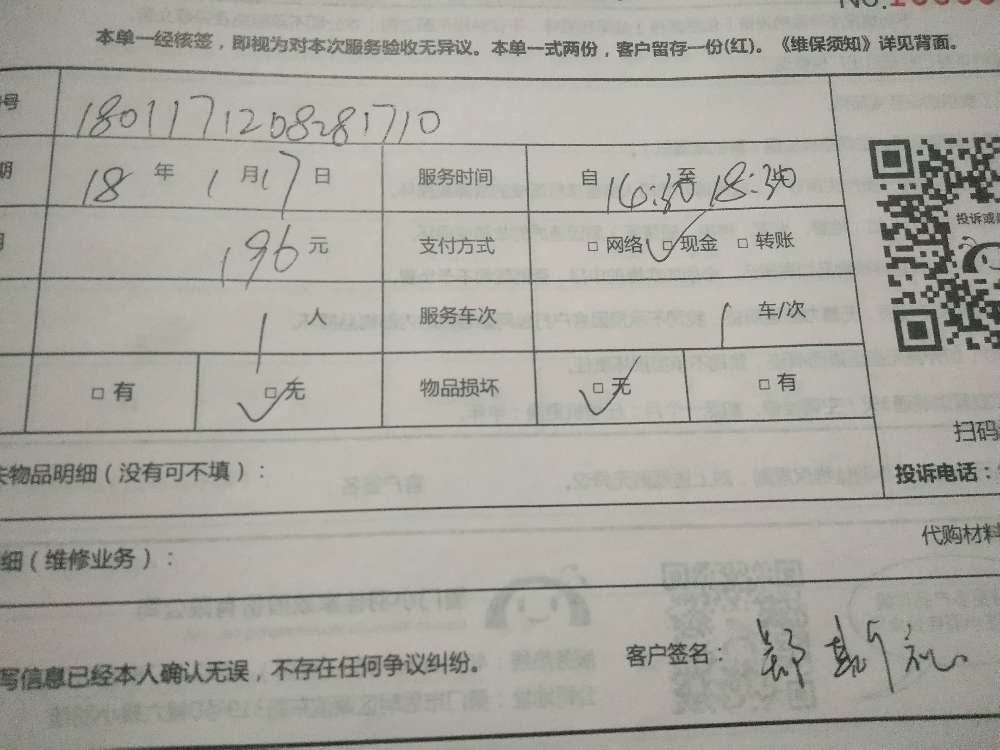 No.
本单一经核签，即视为对本次服务验收无异议。本单一式两份，客户留存一份(红)。《维保须知》详见背面。
号 1801171208281710
期 18 年 1 月 17 日 服务时间 自 16:30 至 18:30
196 元 支付方式 □ 网络 □ 现金 □ 转账
投诉或
1 人 服务车次 1 车/次
□ 有 □ 无 物品损坏 □ 无 □ 有
扫码
物品明细（没有可不填）：
投诉电话：
代购材料
细（维修业务）：
写信息已经本人确认无误，不存在任何争议纠纷。 客户签名：